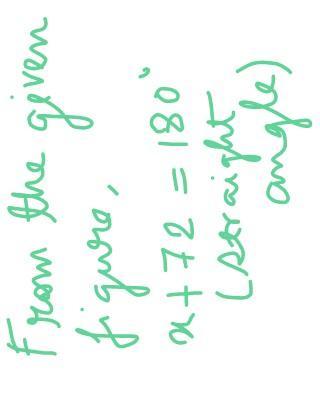 From the given
figure,
x + 72 = 180°
(straight
angle)